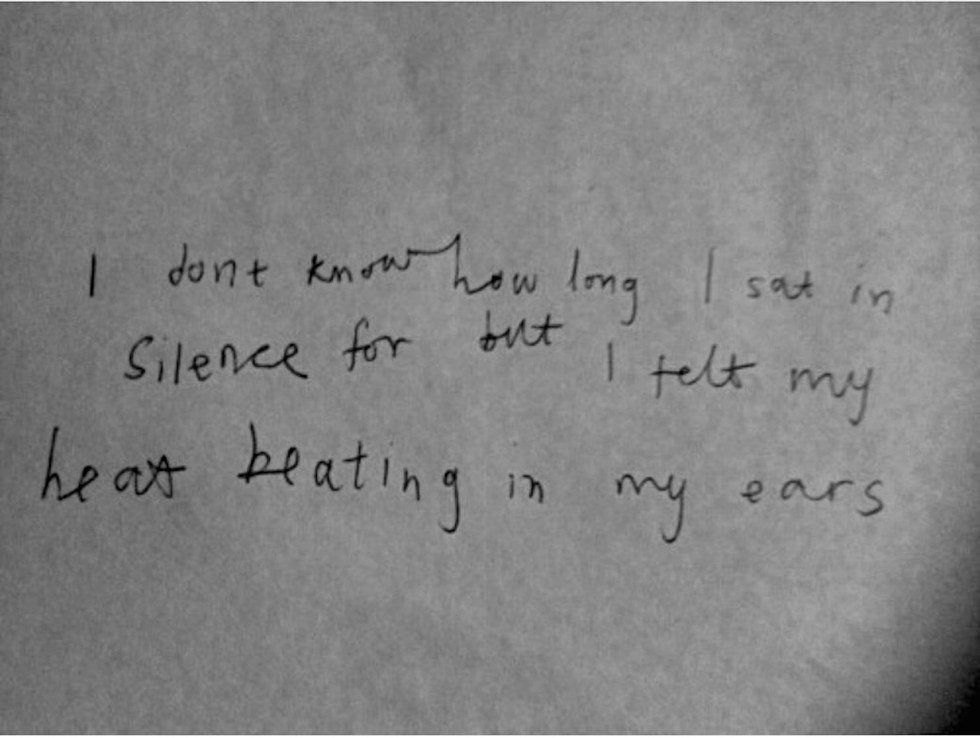 I dont know how long I sat in
silence for but I felt my
heat beating in my ears